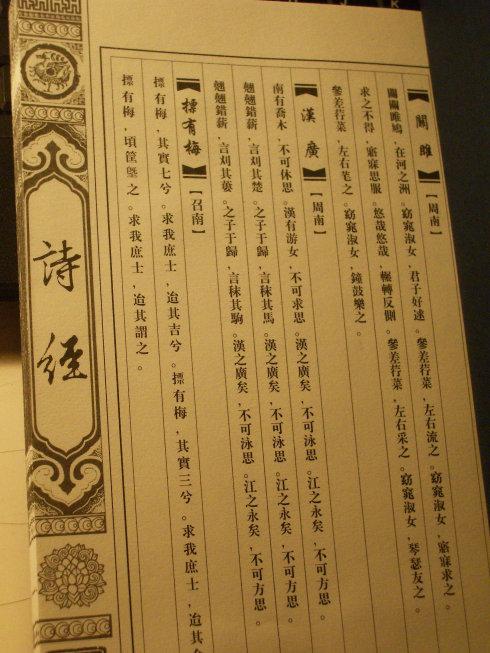 關雎 【周南】
關關雎鳩,在河之洲。窈窕淑女,君子好逑。參差荇菜,左右流之。窈窕淑女,寤寐求之。
求之不得,寤寐思服。悠哉悠哉,輾轉反側。參差荇菜,左右采之。窈窕淑女,琴瑟友之。
參差荇菜,左右芼之。窈窕淑女,鐘鼓樂之。
漢廣 【周南】
南有喬木,不可休思。漢有游女,不可求思。漢之廣矣,不可泳思。江之永矣,不可方思。
翹翹錯薪,言刈其楚。之子于歸,言秣其馬。漢之廣矣,不可泳思。江之永矣,不可方思。
翹翹錯薪,言刈其蔞。之子于歸,言秣其駒。漢之廣矣,不可泳思。江之永矣,不可方思。
摽有梅 【召南】
摽有梅,其實七兮。求我庶士,迨其吉兮。摽有梅,其實三兮。求我庶士,迨其
摽有梅,頃筐塈之。求我庶士,迨其謂之。
詩經